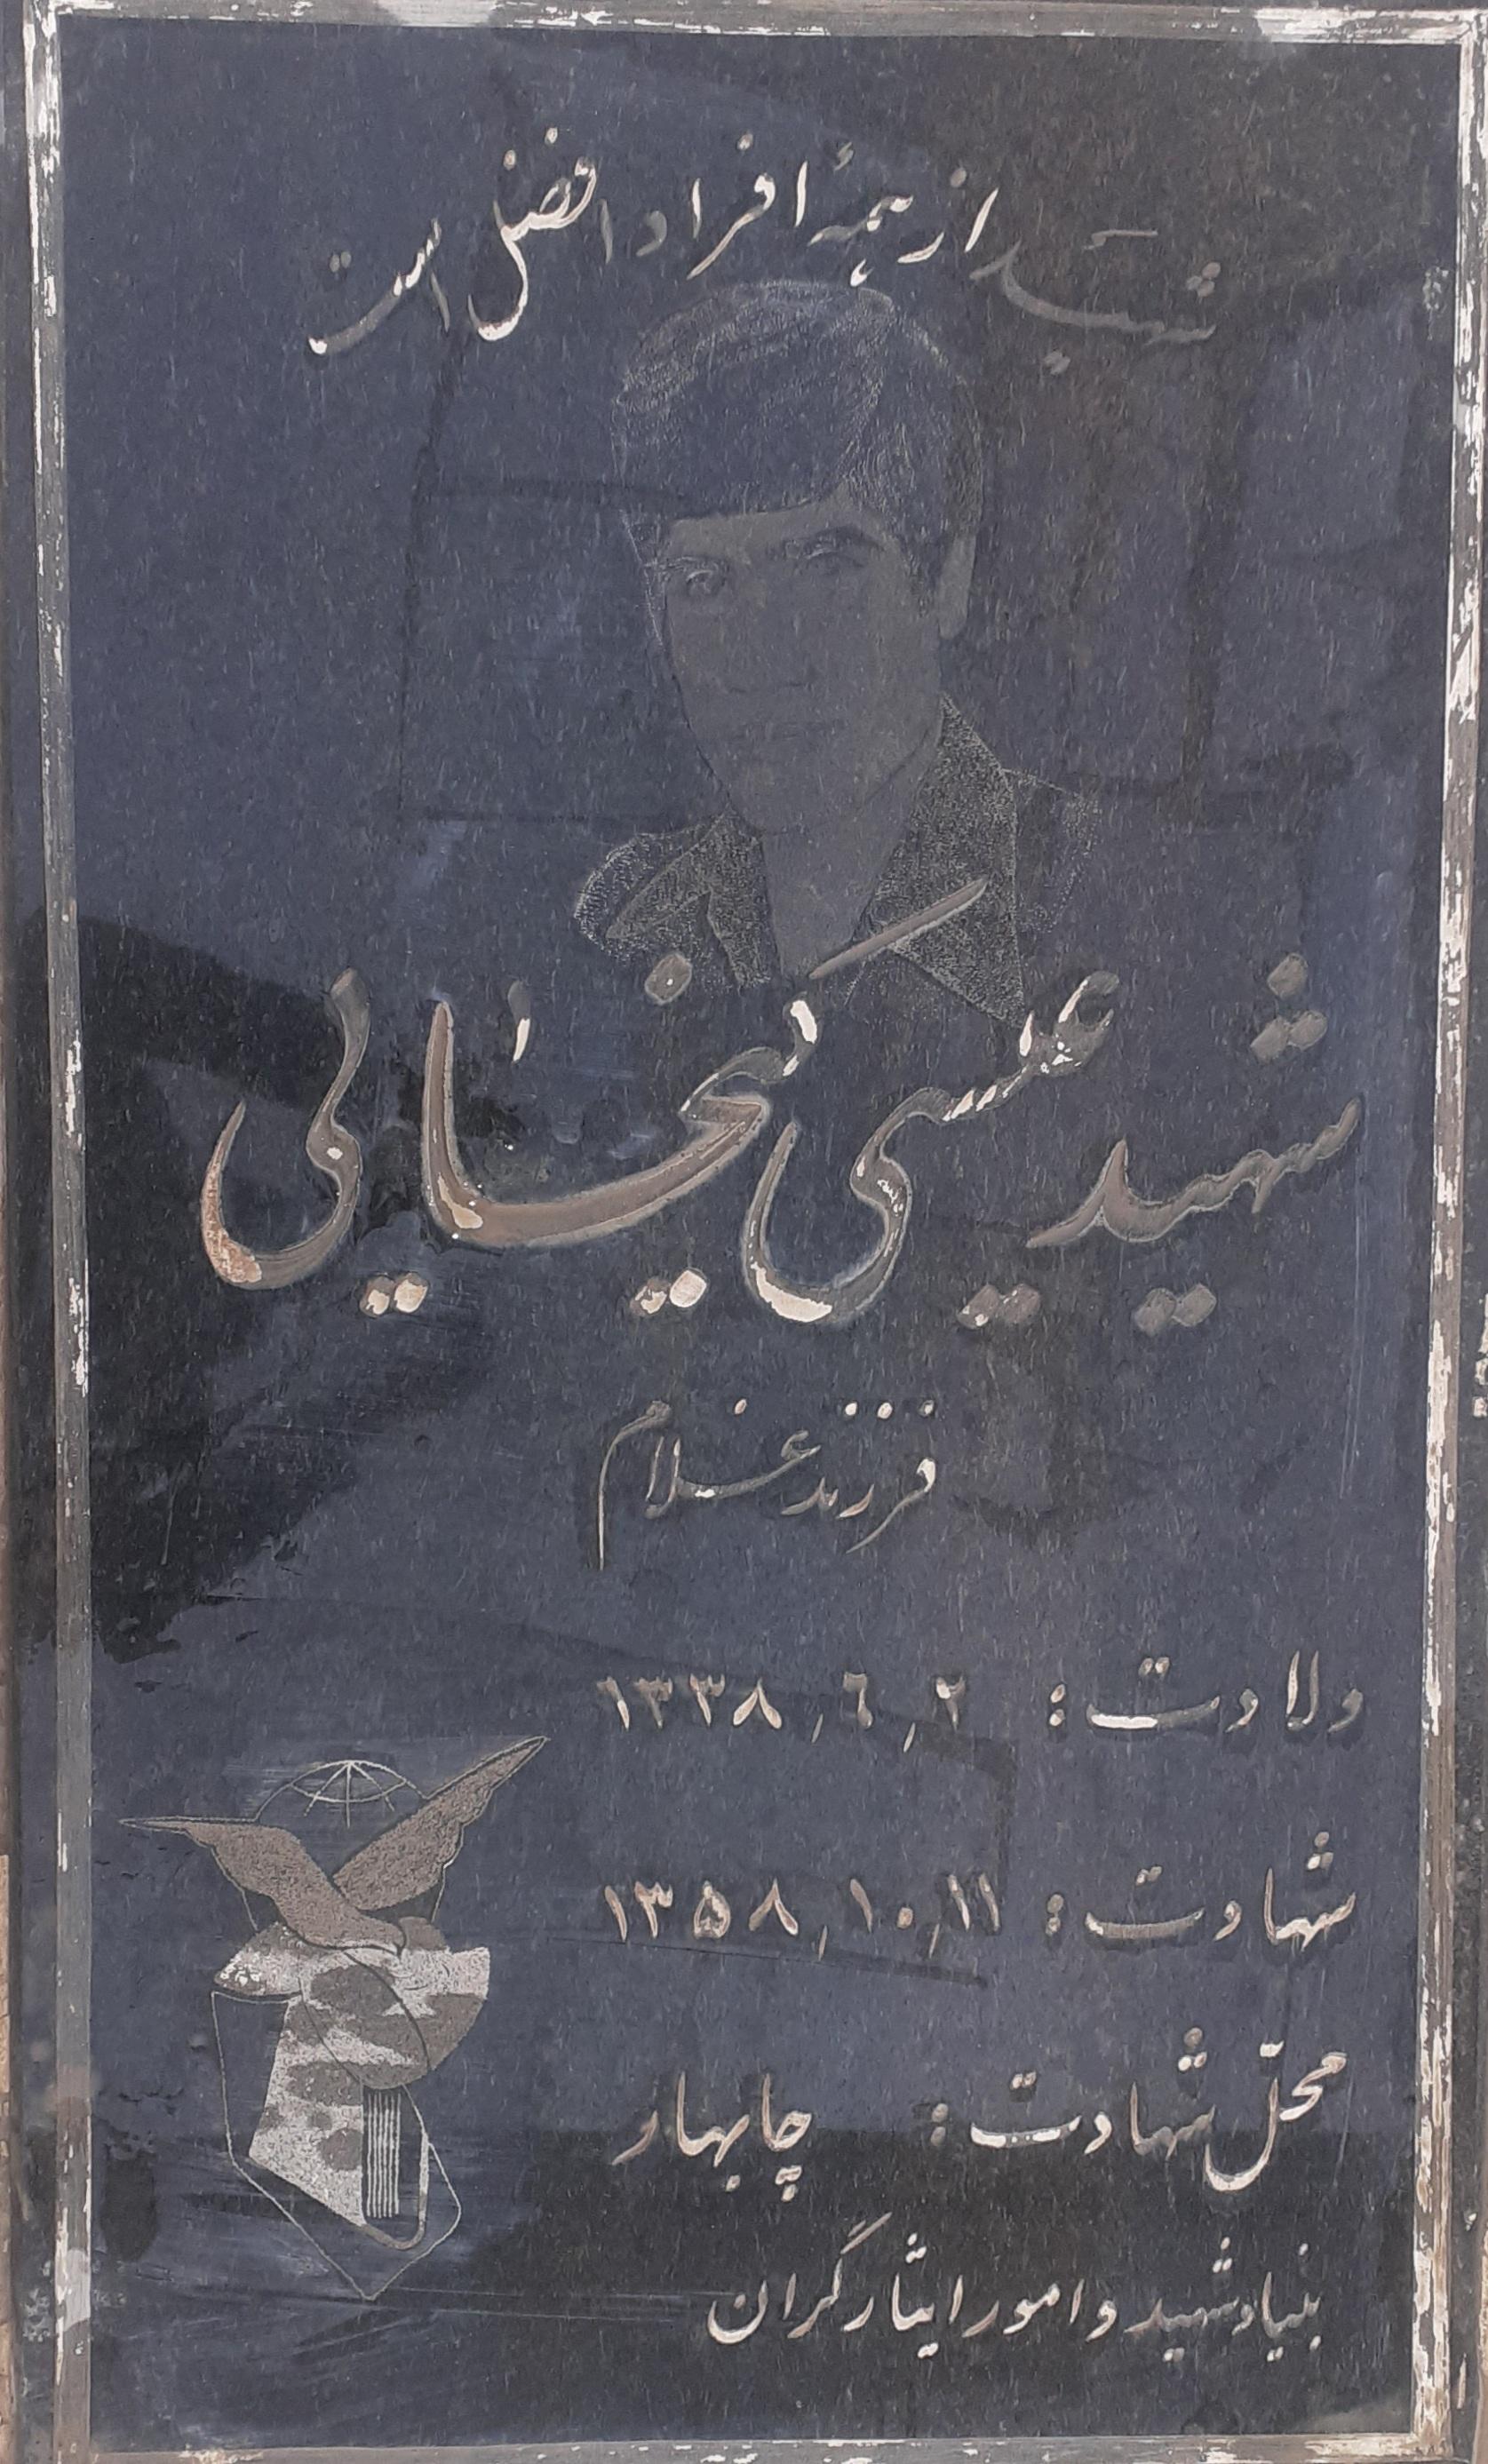 شهید از همهٔ افراد افضل است
شهید عیسی کیخائی
فرزند غلام
ولادت: ۱۳۳۸٫٦٫۲
شهادت: ۱۳۵۸٫۱۰٫۱۱
محلّ شهادت: چابهار
بنیاد شهید و امور ایثارگران